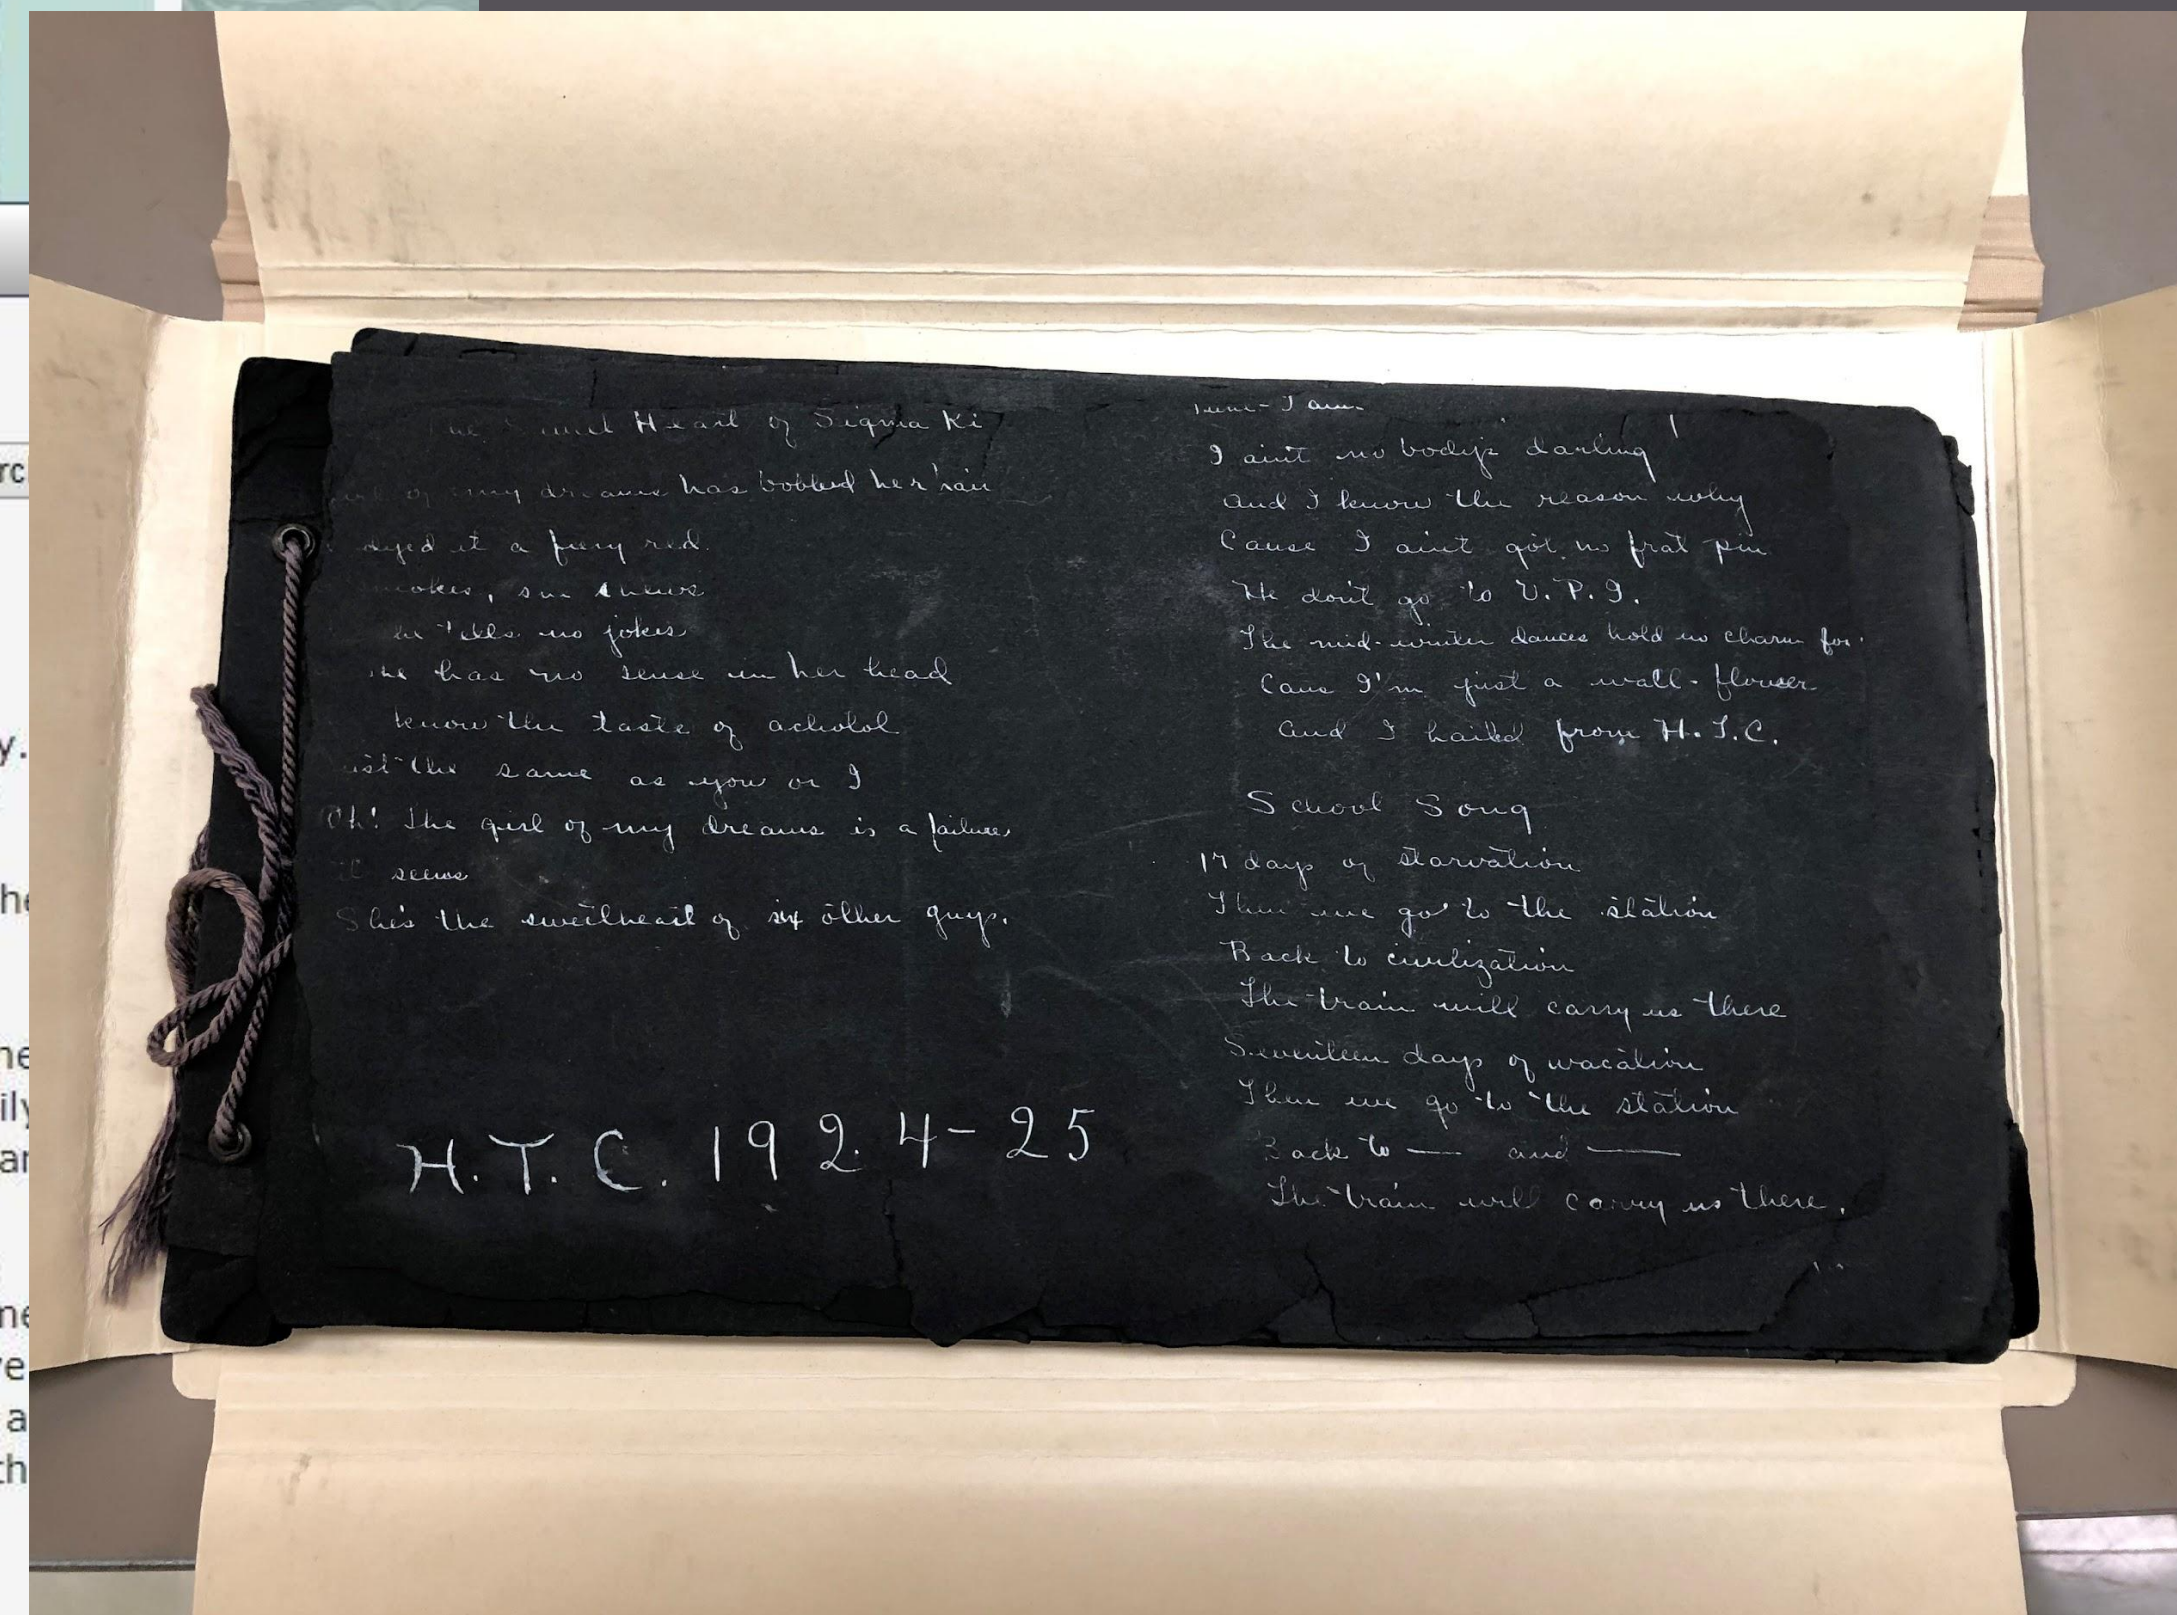 Heart of Sigma Ki
of my dreams has bobbed her hair
dyed it a firey red.
she chews
he tells no jokes
she has no sense in her head
know the taste of acholol
ust the same as you or I
Oh! The girl of my dreams is a failure
it seems
She's the sweetheart of six other guys.
H.T.C. 1924-25
Tune - I am.
I aint no bodys darling
And I know the reason why
Cause I aint got no frat pin
He don't go to V.P.I.
The mid-winter dances hold no charm for
Caus I'm just a wall-flower
And I hailed from H.T.C.
School Song
17 days of starvation
Then we go to the station
Back to civilization
The train will carry us there
Seventeen days of vacation
Then we go to the station
Back to — and —
The train will carry us there.